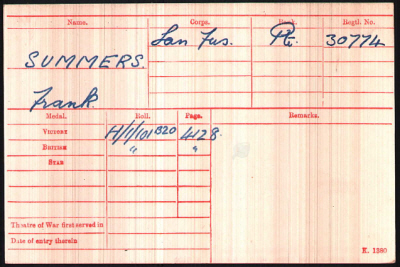 Name. Corps. Rank. Regtl. No.
SUMMERS. Lan Fus. Pte. 30774
Frank.
Medal. Roll. Page. Remarks.
VICTORY H/1/101 B20 4128.
BRITISH " "
STAR
Theatre of War first served in
Date of entry therein
K. 1380